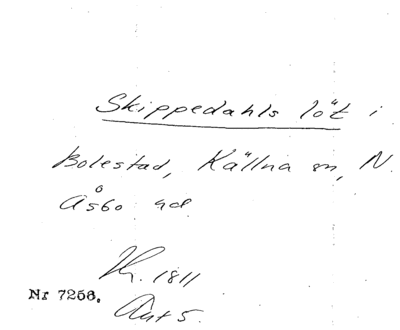 Skippedahls löt i
Bolestad, Källna sn, N.
Åsbo hd
1811
Nr 7256.
Ant 5.